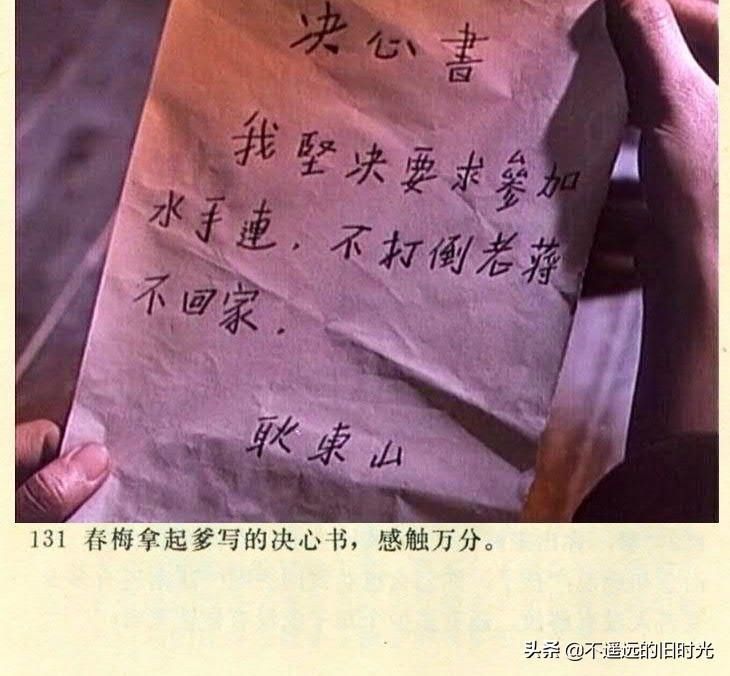 决心書
我堅决要求參加
水手連，不打倒老蒋
不回家．
耿東山
131 春梅拿起爹写的决心书，感触万分。
头条 @不遥远的旧时光